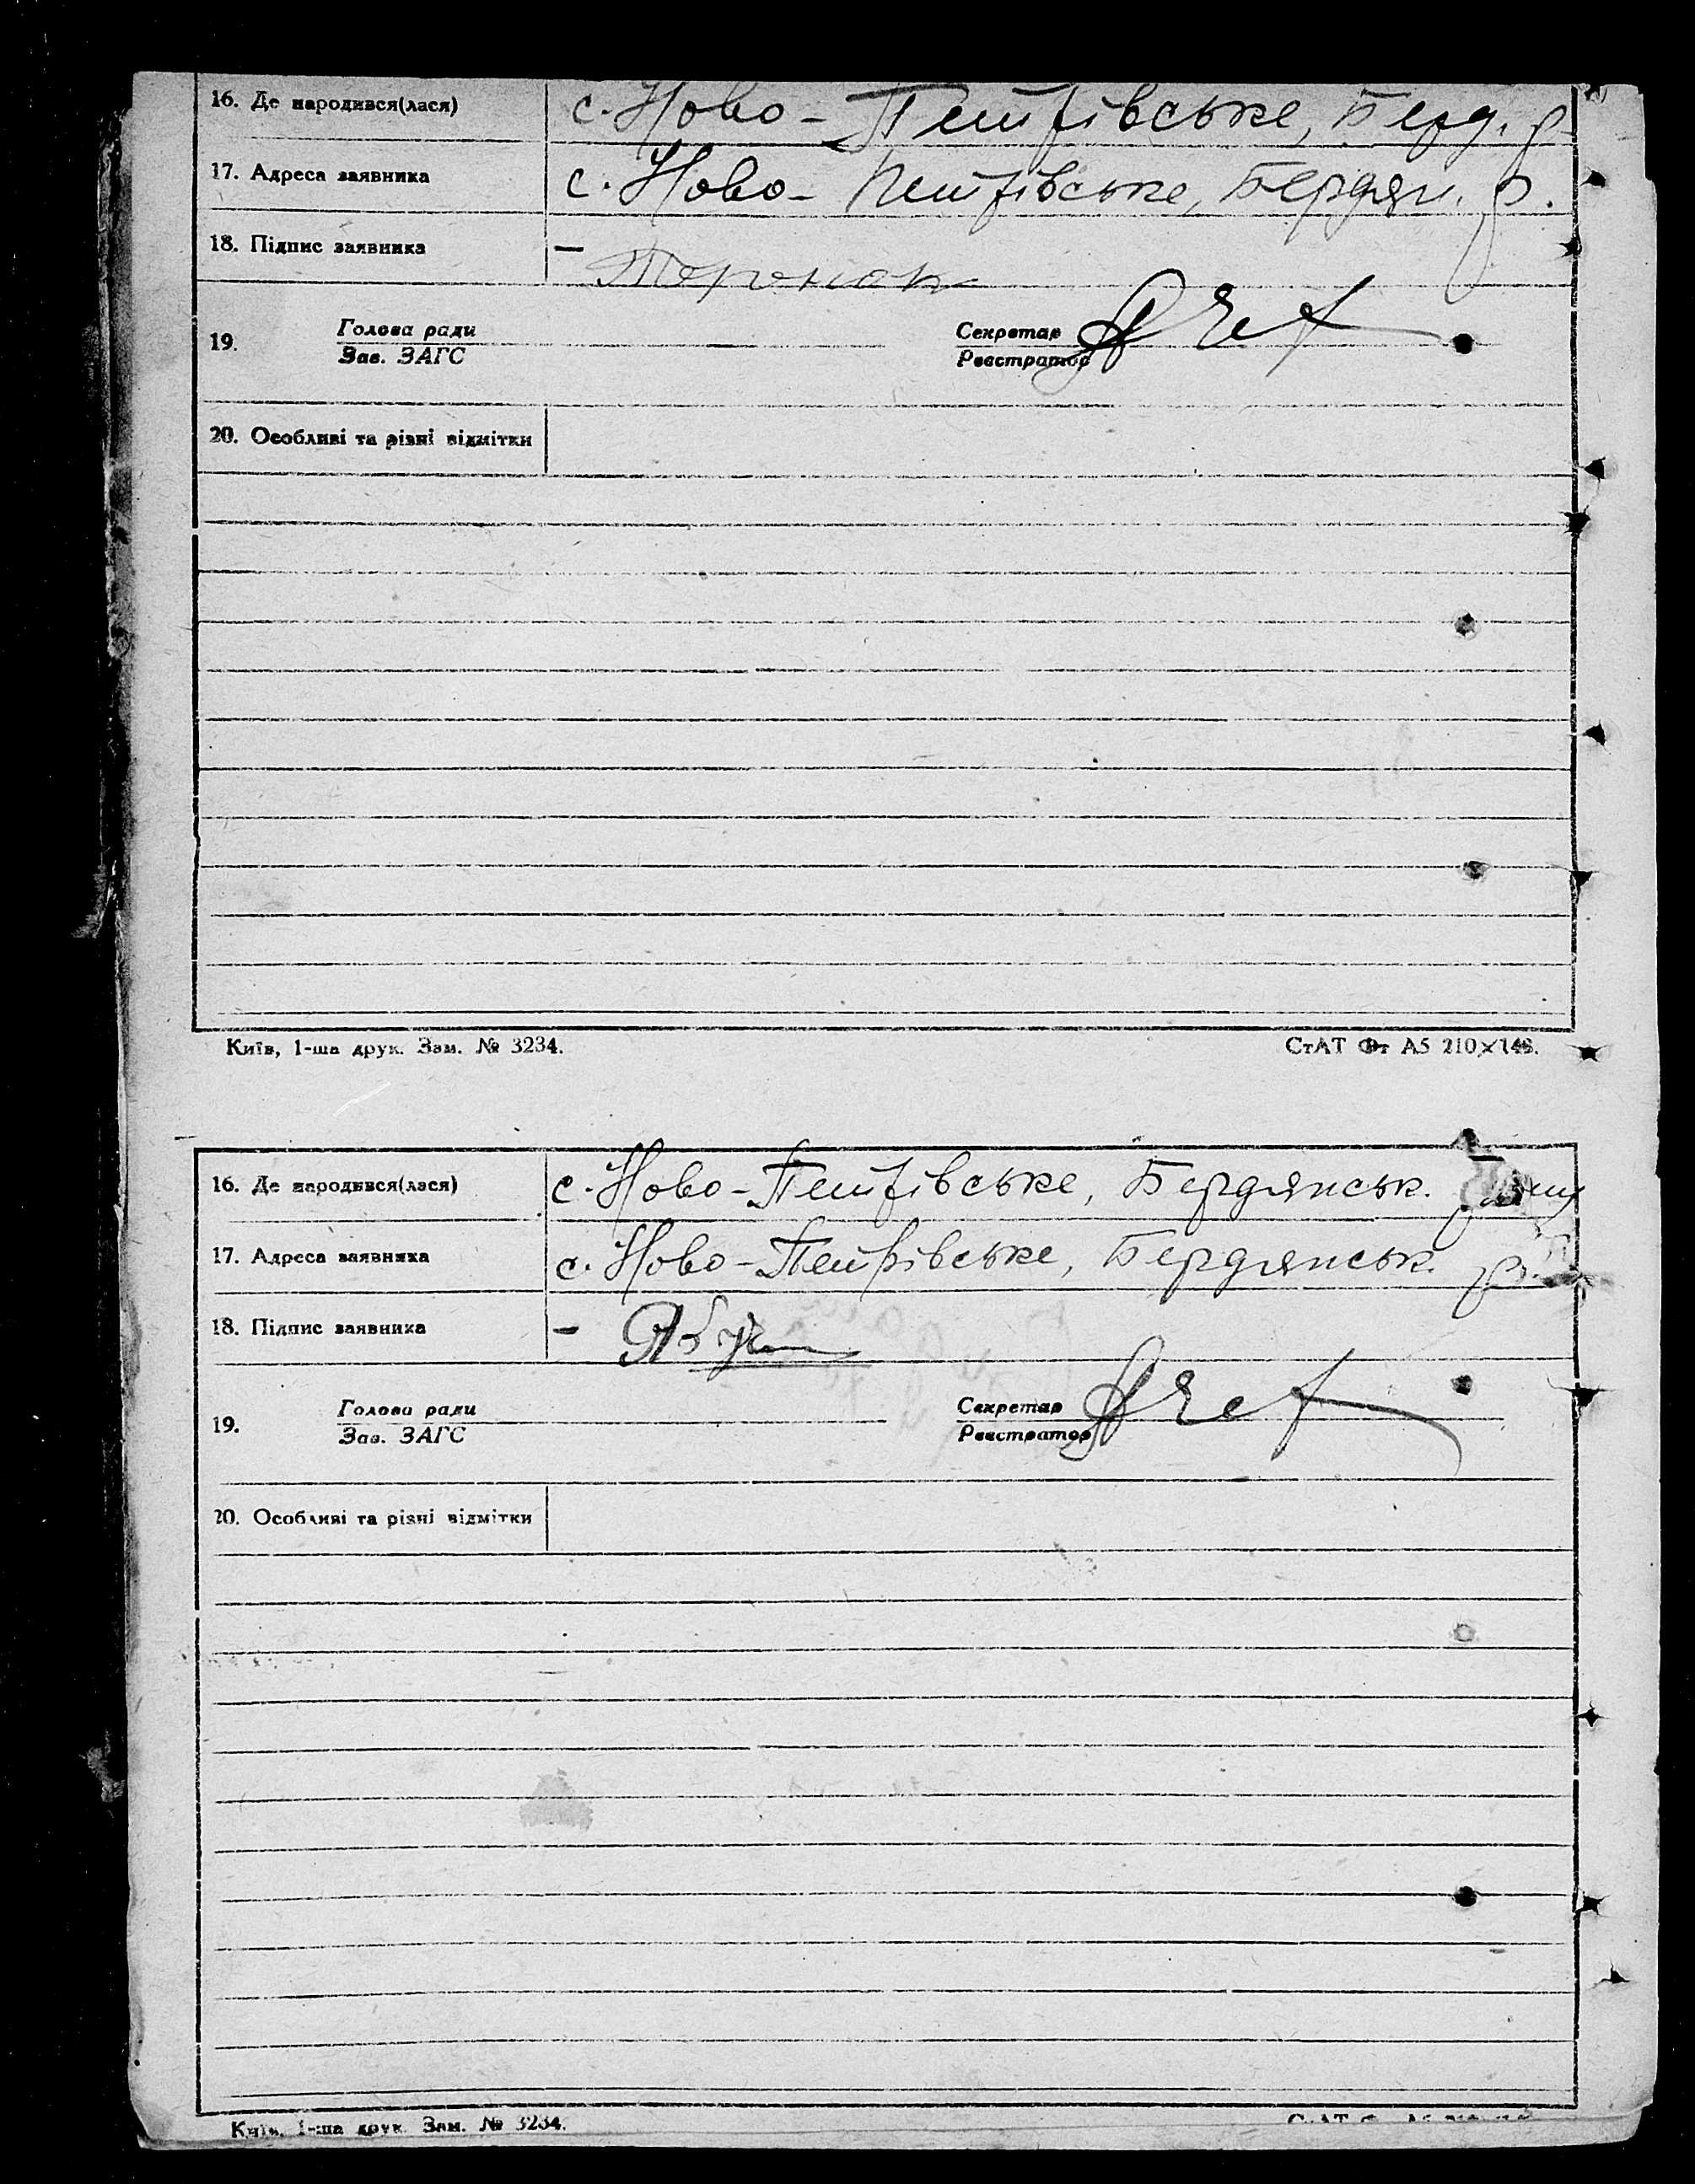 16. Де народився(лася) с. Ново-Петрівське, Берд. р.
17. Адреса заявника с. Ново-Петрівське, Бердян. р.
18. Підпис заявника –
19. Голова ради Секретар
Зав. ЗАГС Реєстратор
20. Особливі та різні відмітки
Київ, 1-ша друк. Зам. № 3234. СтАТ Фт А5 210×148.
16. Де народився(лася) с. Ново-Петрівське, Бердянськ.
17. Адреса заявника с. Ново-Петрівське, Бердянськ. р.
18. Підпис заявника –
19. Голова ради Секретар
Зав. ЗАГС Реєстратор
20. Особливі та різні відмітки
Київ, 1-ша друк. Зам. № 3234.